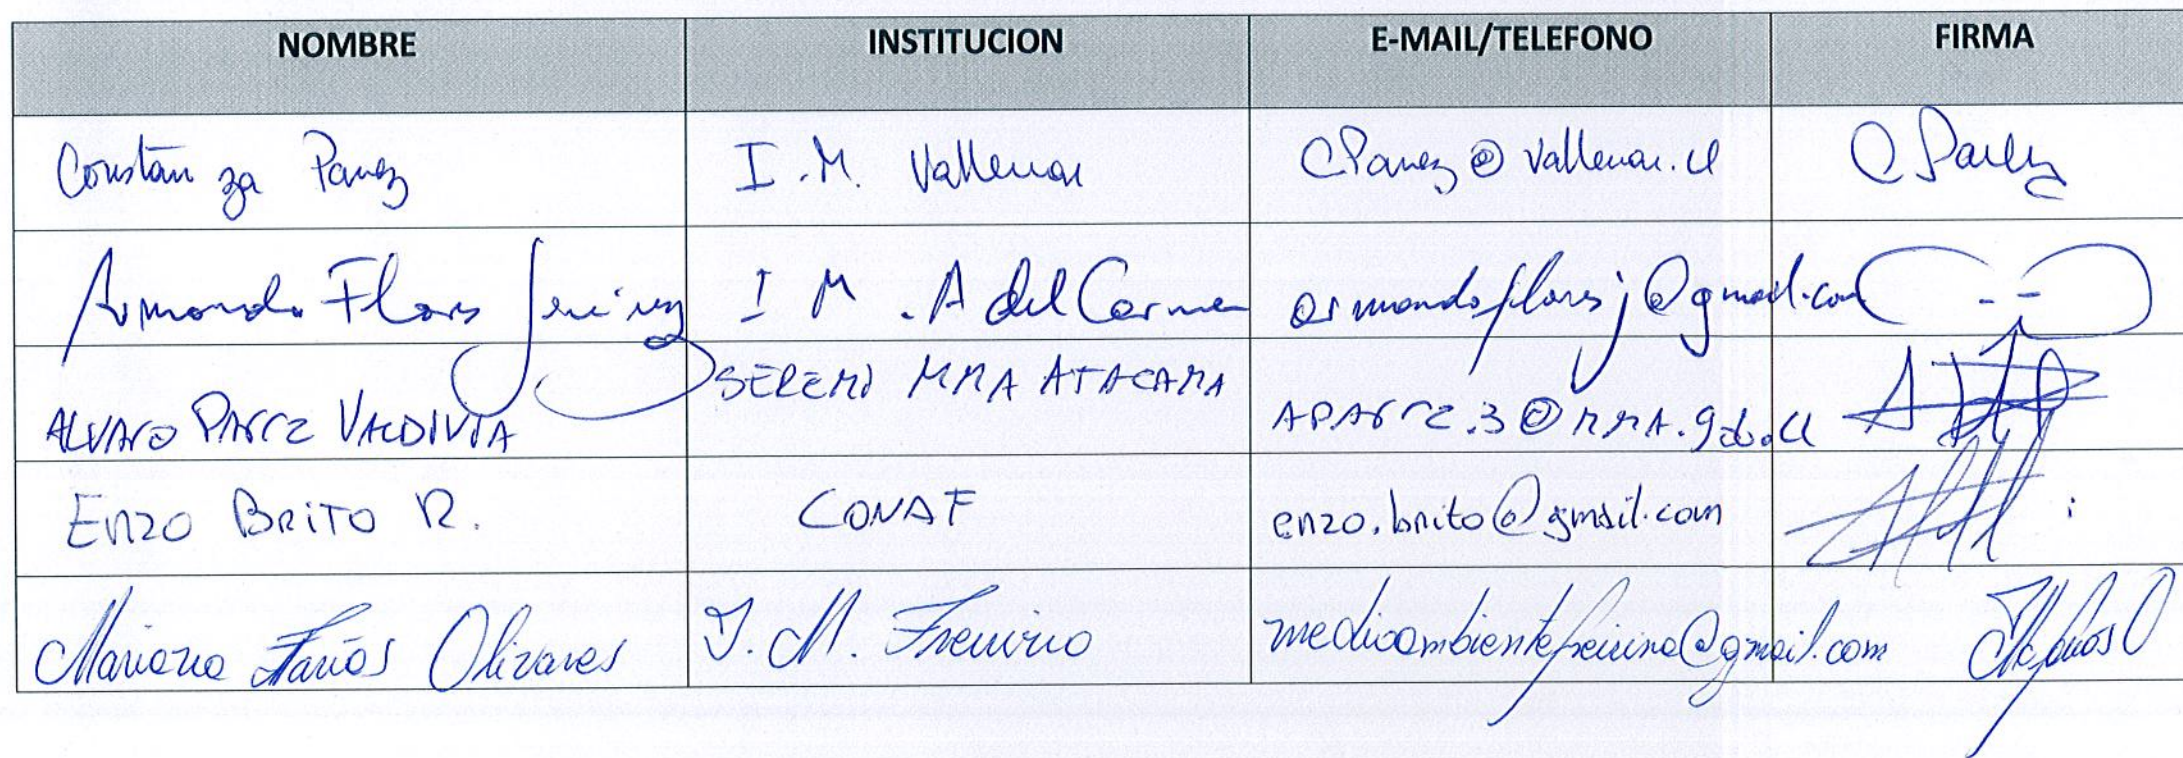 NOMBRE INSTITUCION E-MAIL/TELEFONO FIRMA
Constanza Panez I.M. Vallenar CPanez@vallenar.cl C Panez
Armando Flores Jeriez I M. A del Carmen armandofloresj@gmail.com
ALVARO PARRA VALDIVIA SEREMI MMA ATACAMA APARRA.3@MMA.gob.cl
ENZO BRITO R. CONAF enzo.brito@gmail.com
Mariana Farías Olivares I. M. Freirina medioambientefreirina@gmail.com